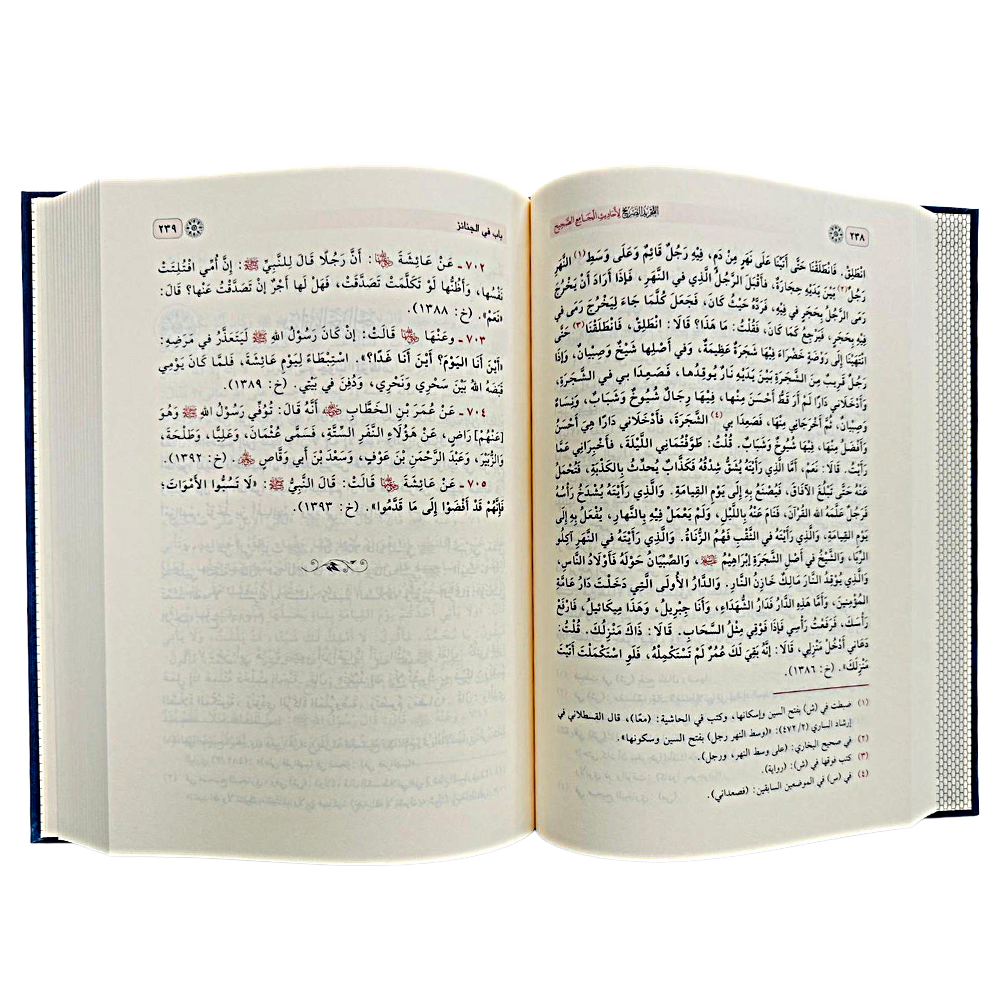 ٢٣٨
التجريد الصريح لأحاديث الجامع الصحيح
انْطَلِقْ. فَانْطَلَقْنَا حَتَّى أَتَيْنَا عَلَى نَهَرٍ مِنْ دَمٍ، فِيهِ رَجُلٌ قَائِمٌ وَعَلَى وَسَطِ (١) النَّهَرِ
رَجُلٌ (٢) بَيْنَ يَدَيْهِ حِجَارَةٌ، فَأَقْبَلَ الرَّجُلُ الَّذِي فِي النَّهَرِ، فَإِذَا أَرَادَ أَنْ يَخْرُجَ
رَمَى الرَّجُلُ بِحَجَرٍ فِي فِيهِ، فَرَدَّهُ حَيْثُ كَانَ، فَجَعَلَ كُلَّمَا جَاءَ لِيَخْرُجَ رَمَى فِي
فِيهِ بِحَجَرٍ، فَيَرْجِعُ كَمَا كَانَ، فَقُلْتُ: مَا هَذَا؟ قَالَا: انْطَلِقْ، فَانْطَلَقْنَا (٣) حَتَّى
انْتَهَيْنَا إِلَى رَوْضَةٍ خَضْرَاءَ فِيهَا شَجَرَةٌ عَظِيمَةٌ، وَفِي أَصْلِهَا شَيْخٌ وَصِبْيَانٌ، وَإِذَا
رَجُلٌ قَرِيبٌ مِنَ الشَّجَرَةِ بَيْنَ يَدَيْهِ نَارٌ يُوقِدُهَا، فَصَعِدَا بِي فِي الشَّجَرَةِ،
وَأَدْخَلَانِي دَارًا لَمْ أَرَ قَطُّ أَحْسَنَ مِنْهَا، فِيهَا رِجَالٌ شُيُوخٌ وَشَبَابٌ، وَنِسَاءٌ
وَصِبْيَانٌ، ثُمَّ أَخْرَجَانِي مِنْهَا، فَصَعِدَا بِي (٤) الشَّجَرَةَ، فَأَدْخَلَانِي دَارًا هِيَ أَحْسَنُ
وَأَفْضَلُ مِنْهَا، فِيهَا شُيُوخٌ وَشَبَابٌ. قُلْتُ: طَوَّفْتُمَانِي اللَّيْلَةَ، فَأَخْبِرَانِي عَمَّا
رَأَيْتُ. قَالَا: نَعَمْ، أَمَّا الَّذِي رَأَيْتَهُ يُشَقُّ شِدْقُهُ فَكَذَّابٌ يُحَدِّثُ بِالْكَذْبَةِ، فَتُحْمَلُ
عَنْهُ حَتَّى تَبْلُغَ الْآفَاقَ، فَيُصْنَعُ بِهِ إِلَى يَوْمِ الْقِيَامَةِ. وَالَّذِي رَأَيْتَهُ يُشْدَخُ رَأْسُهُ
فَرَجُلٌ عَلَّمَهُ اللهُ الْقُرْآنَ، فَنَامَ عَنْهُ بِاللَّيْلِ، وَلَمْ يَعْمَلْ فِيهِ بِالنَّهَارِ، يُفْعَلُ بِهِ إِلَى
يَوْمِ الْقِيَامَةِ، وَالَّذِي رَأَيْتَهُ فِي الثَّقْبِ فَهُمُ الزُّنَاةُ. وَالَّذِي رَأَيْتَهُ فِي النَّهَرِ آكِلُو
الرِّبَا، وَالشَّيْخُ فِي أَصْلِ الشَّجَرَةِ إِبْرَاهِيمُ ، وَالصِّبْيَانُ حَوْلَهُ فَأَوْلَادُ النَّاسِ،
وَالَّذِي يُوقِدُ النَّارَ مَالِكٌ خَازِنُ النَّارِ. وَالدَّارُ الْأُولَى الَّتِي دَخَلْتَ دَارُ عَامَّةِ
الْمُؤْمِنِينَ، وَأَمَّا هَذِهِ الدَّارُ فَدَارُ الشُّهَدَاءِ، وَأَنَا جِبْرِيلُ، وَهَذَا مِيكَائِيلُ، فَارْفَعْ
رَأْسَكَ، فَرَفَعْتُ رَأْسِي فَإِذَا فَوْقِي مِثْلُ السَّحَابِ. قَالَا: ذَاكَ مَنْزِلُكَ. قُلْتُ:
دَعَانِي أَدْخُلْ مَنْزِلِي، قَالَا: إِنَّهُ بَقِيَ لَكَ عُمُرٌ لَمْ تَسْتَكْمِلْهُ، فَلَوِ اسْتَكْمَلْتَ أَتَيْتَ
مَنْزِلَكَ». (خ: ١٣٨٦).
(١) ضبطت في (ش) بفتح السين وإسكانها، وكتب في الحاشية: (معًا)، قال القسطلاني في
إرشاد الساري (٤٧٢/٢): «(وسط النهر رجل) بفتح السين وسكونها».
(٢) في صحيح البخاري: (على وسط النهر، ورجل).
(٣) كتب فوقها في (ش): (رواية).
(٤) في (س) في الموضعين السابقين: (فصعداني).
باب في الجنائز
٢٣٩
٧٠٢ ـ عَنْ عَائِشَةَ : أَنَّ رَجُلًا قَالَ لِلنَّبِيِّ ﷺ: إِنَّ أُمِّي افْتُلِتَتْ
نَفْسُهَا، وَأَظُنُّهَا لَوْ تَكَلَّمَتْ تَصَدَّقَتْ، فَهَلْ لَهَا أَجْرٌ إِنْ تَصَدَّقْتُ عَنْهَا؟ قَالَ:
«نَعَمْ». (خ: ١٣٨٨).
٧٠٣ ـ وَعَنْهَا قَالَتْ: إِنْ كَانَ رَسُولُ اللهِ ﷺ لَيَتَعَذَّرُ فِي مَرَضِهِ:
«أَيْنَ أَنَا الْيَوْمَ؟ أَيْنَ أَنَا غَدًا؟». اسْتِبْطَاءً لِيَوْمِ عَائِشَةَ، فَلَمَّا كَانَ يَوْمِي
قَبَضَهُ اللهُ بَيْنَ سَحْرِي وَنَحْرِي، وَدُفِنَ فِي بَيْتِي. (خ: ١٣٨٩).
٧٠٤ ـ عَنْ عُمَرَ بْنِ الْخَطَّابِ أَنَّهُ قَالَ: تُوُفِّيَ رَسُولُ اللهِ ﷺ وَهُوَ
[عَنْهُمْ] رَاضٍ، عَنْ هَؤُلَاءِ النَّفَرِ السِّتَّةِ، فَسَمَّى عُثْمَانَ، وَعَلِيًّا، وَطَلْحَةَ،
وَالزُّبَيْرَ، وَعَبْدَ الرَّحْمَنِ بْنَ عَوْفٍ، وَسَعْدَ بْنَ أَبِي وَقَّاصٍ . (خ: ١٣٩٢).
٧٠٥ ـ عَنْ عَائِشَةَ قَالَتْ: قَالَ النَّبِيُّ ﷺ: «لَا تَسُبُّوا الْأَمْوَاتَ؛
فَإِنَّهُمْ قَدْ أَفْضَوْا إِلَى مَا قَدَّمُوا». (خ: ١٣٩٣).